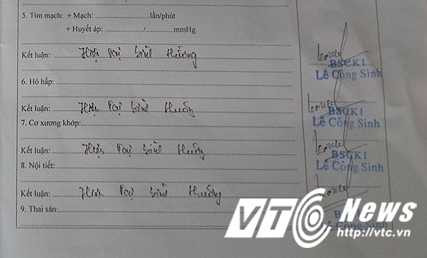 5. Tim mạch: + Mạch: lần/phút
+ Huyết áp: / mmHg
Kết luận: Hiện tại bình thường
BSCK1
Lê Công Sinh
6. Hô hấp:
Kết luận: Hiện tại bình thường
BSCK1
Lê Công Sinh
7. Cơ xương khớp:
Kết luận: Hiện tại bình thường
BSCK1
Lê Công Sinh
8. Nội tiết:
Kết luận: Hiện tại bình thường
BSCK1
Lê Công Sinh
9. Thai sản:
VTC News
http://vtc.vn